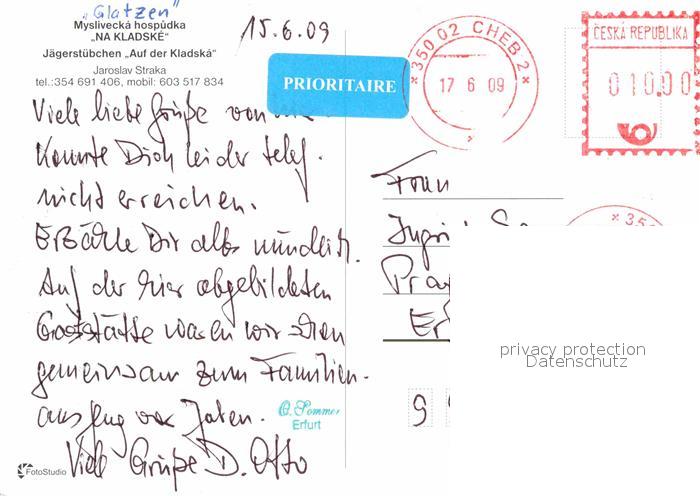 „Glatzen"
Myslivecká hospůdka
„NA KLADSKÉ“
Jägerstübchen „Auf der Kladská“
Jaroslav Straka
tel.:354 691 406, mobil: 603 517 834
15.6.09
PRIORITAIRE
* 350 02 CHEB 2 *
17 6 09
ČESKÁ REPUBLIKA
01000
Viele liebe Grüße von
Konnte Dich leider telef.
nicht erreichen.
Erzähle Dir alles mündlich.
Auf der hier abgebildeten
Gaststätte waren wir schon
gemeinsam zum Familien-
ausflug vor Jahren.
Viele Grüße D. Otto
O. Sommer
Erfurt
FotoStudio
Frau
* 35
9
privacy protection
Datenschutz